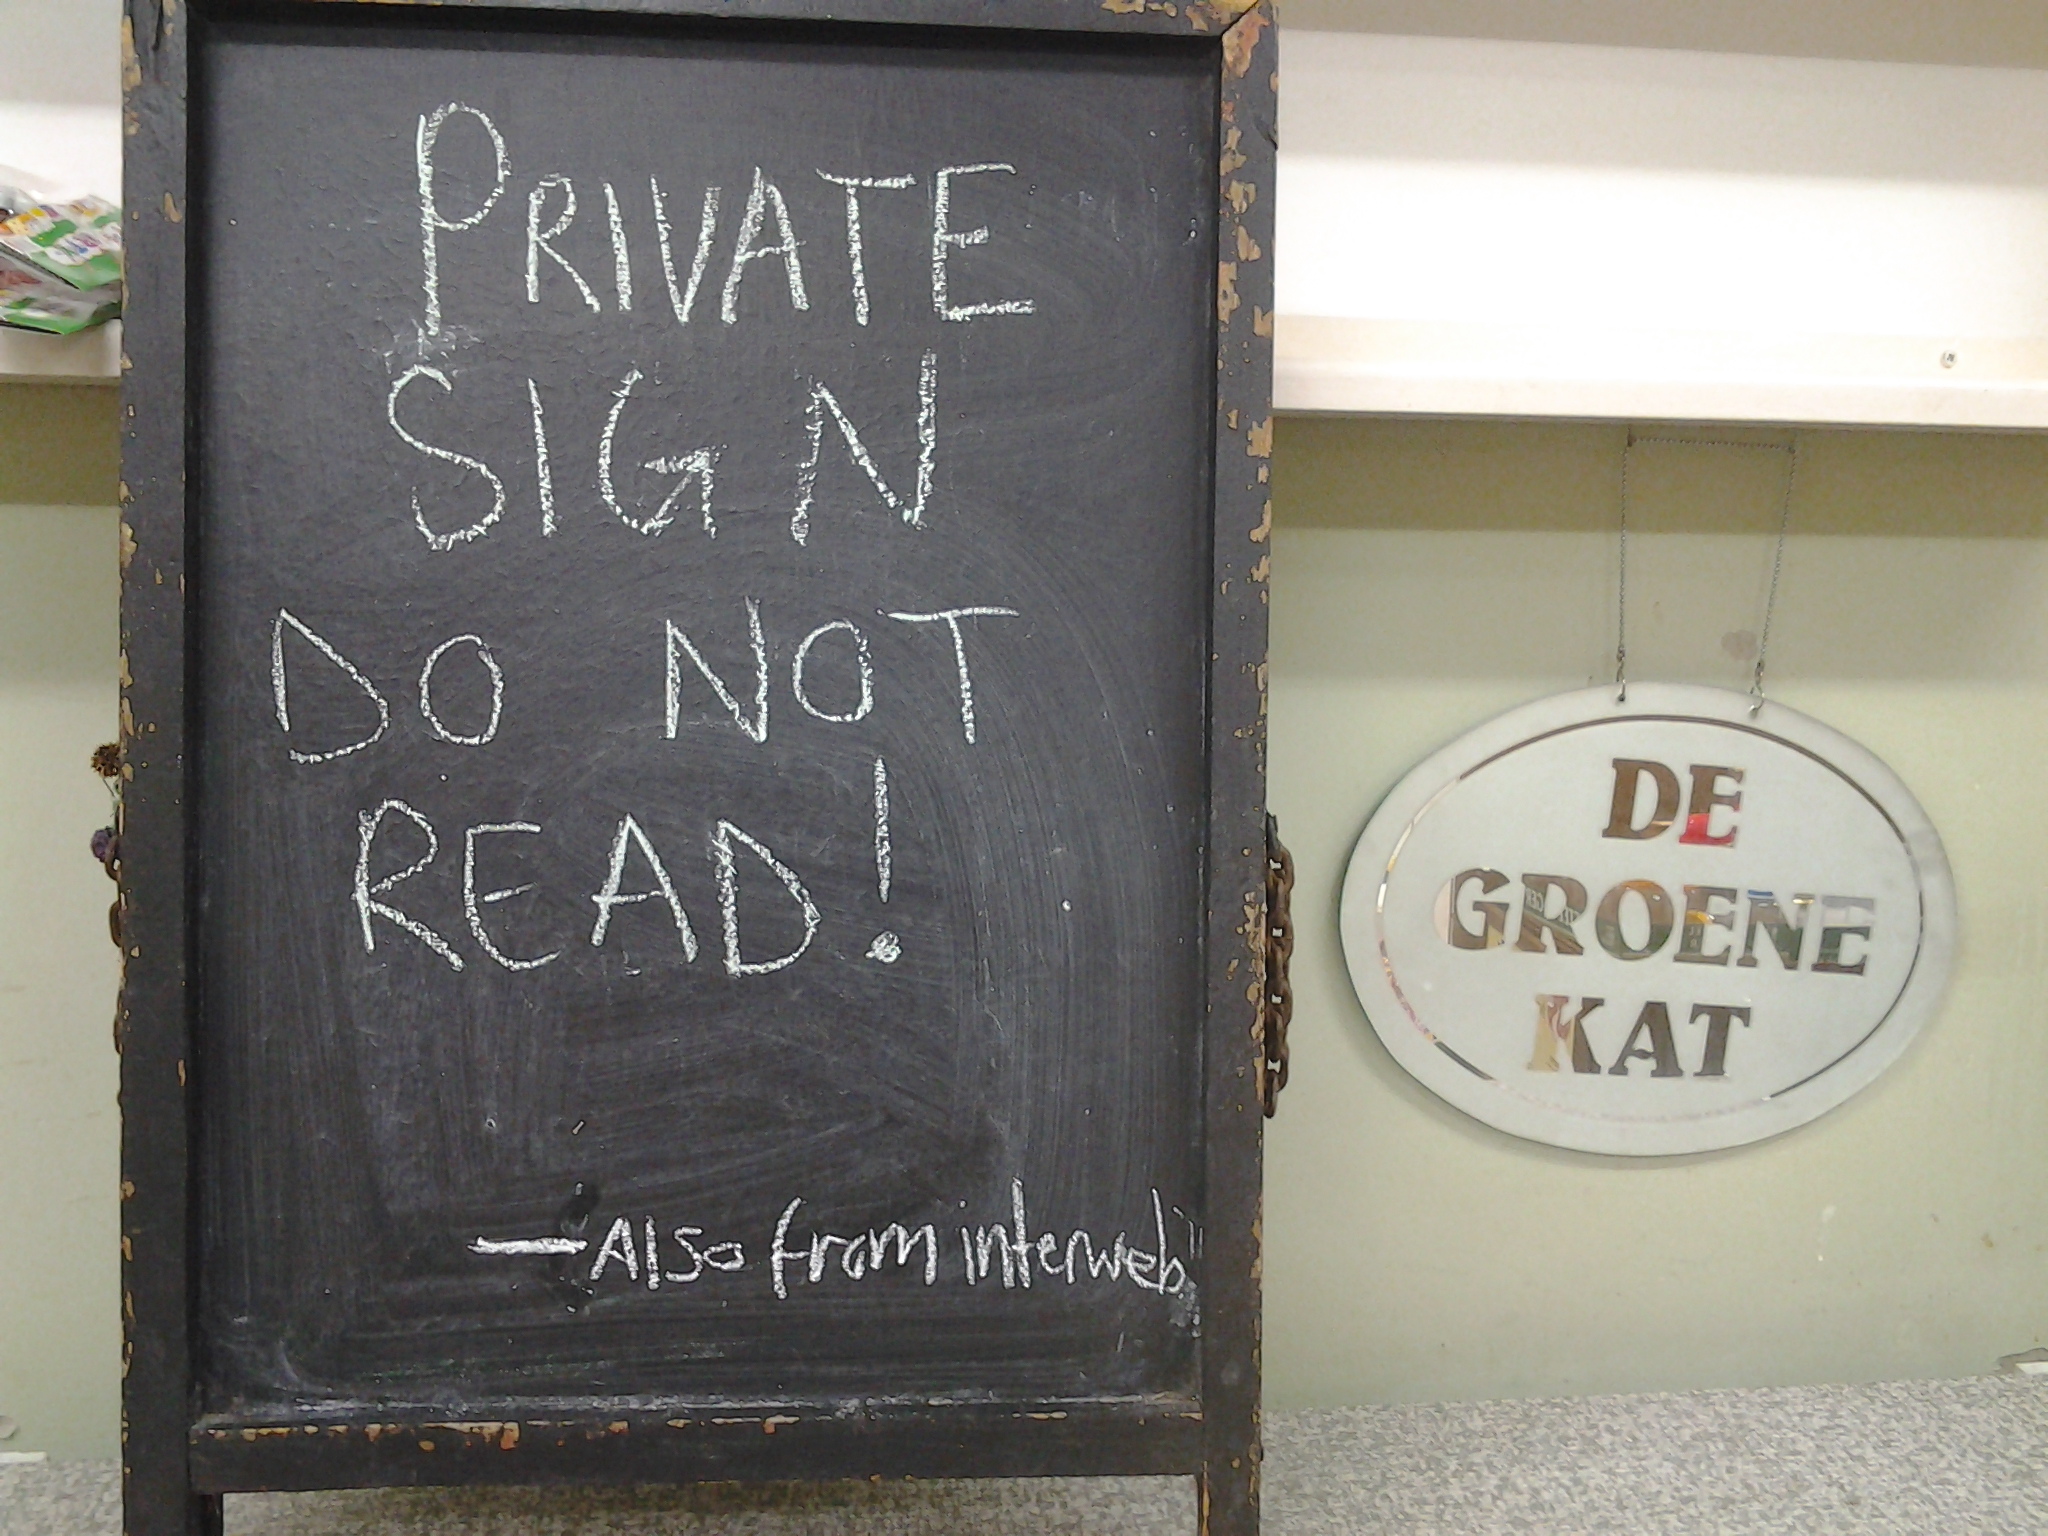 PRIVATE
SIGN
DO NOT
READ!
— Also from interweb
DE
GROENE
KAT